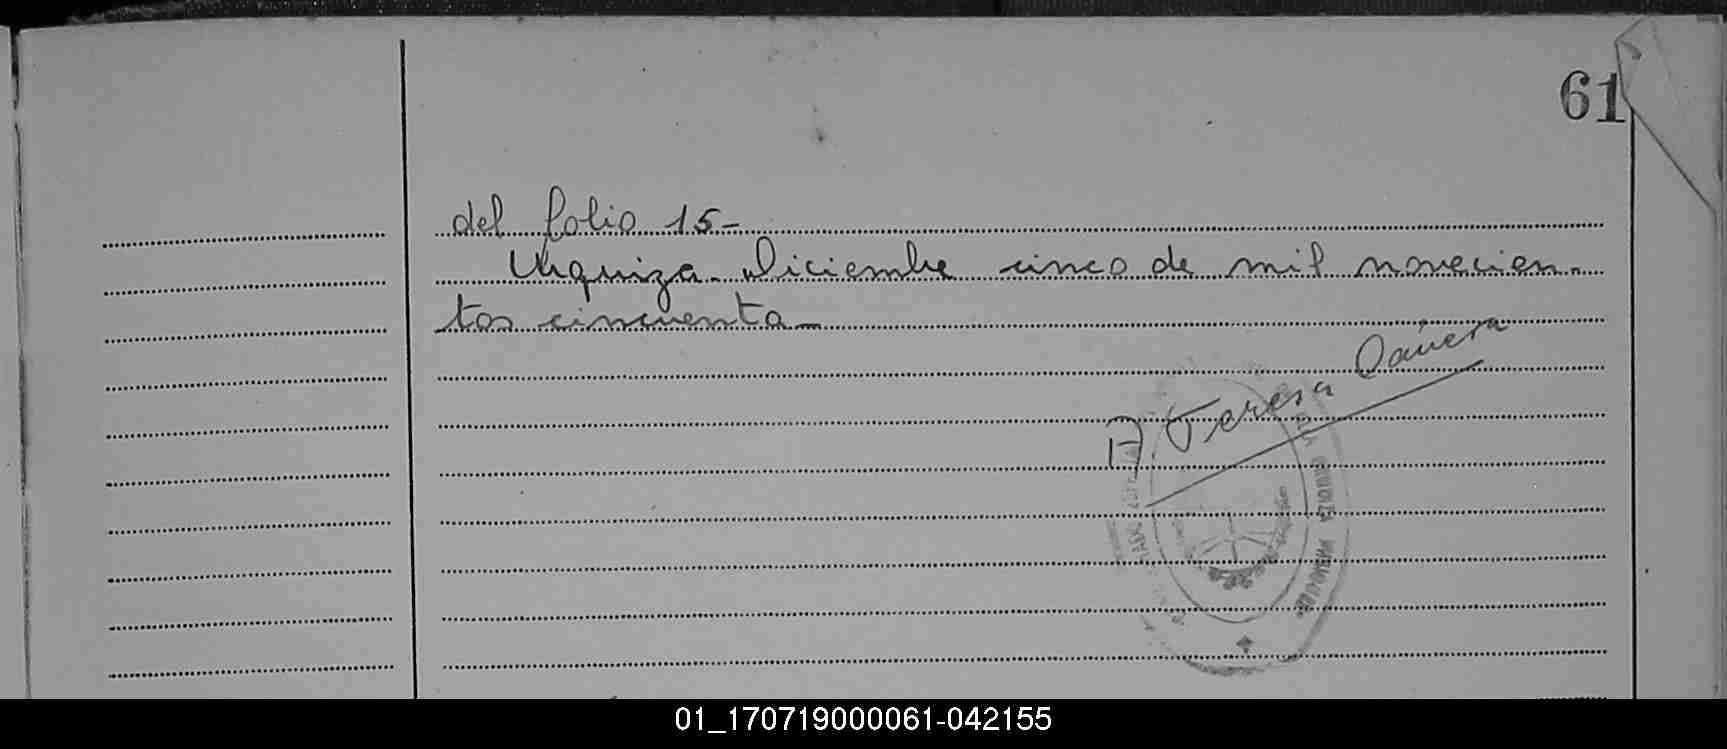 61
del folio 15-
Urquiza. Diciembre cinco de mil novecien-
tos cincuenta-
Teresa
01_170719000061-042155